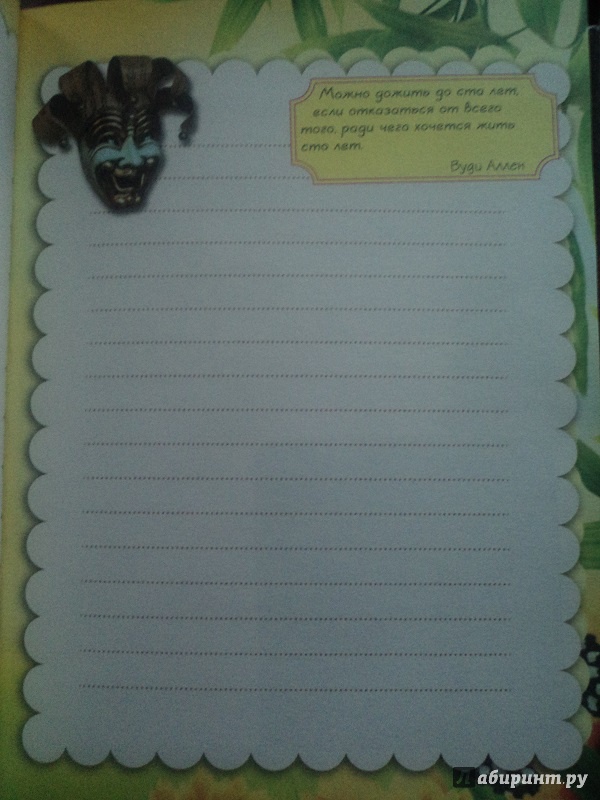 Можно дожить до ста лет,
если отказаться от всего
того, ради чего хочется жить
сто лет.
Вуди Аллен
Лабиринт.ру